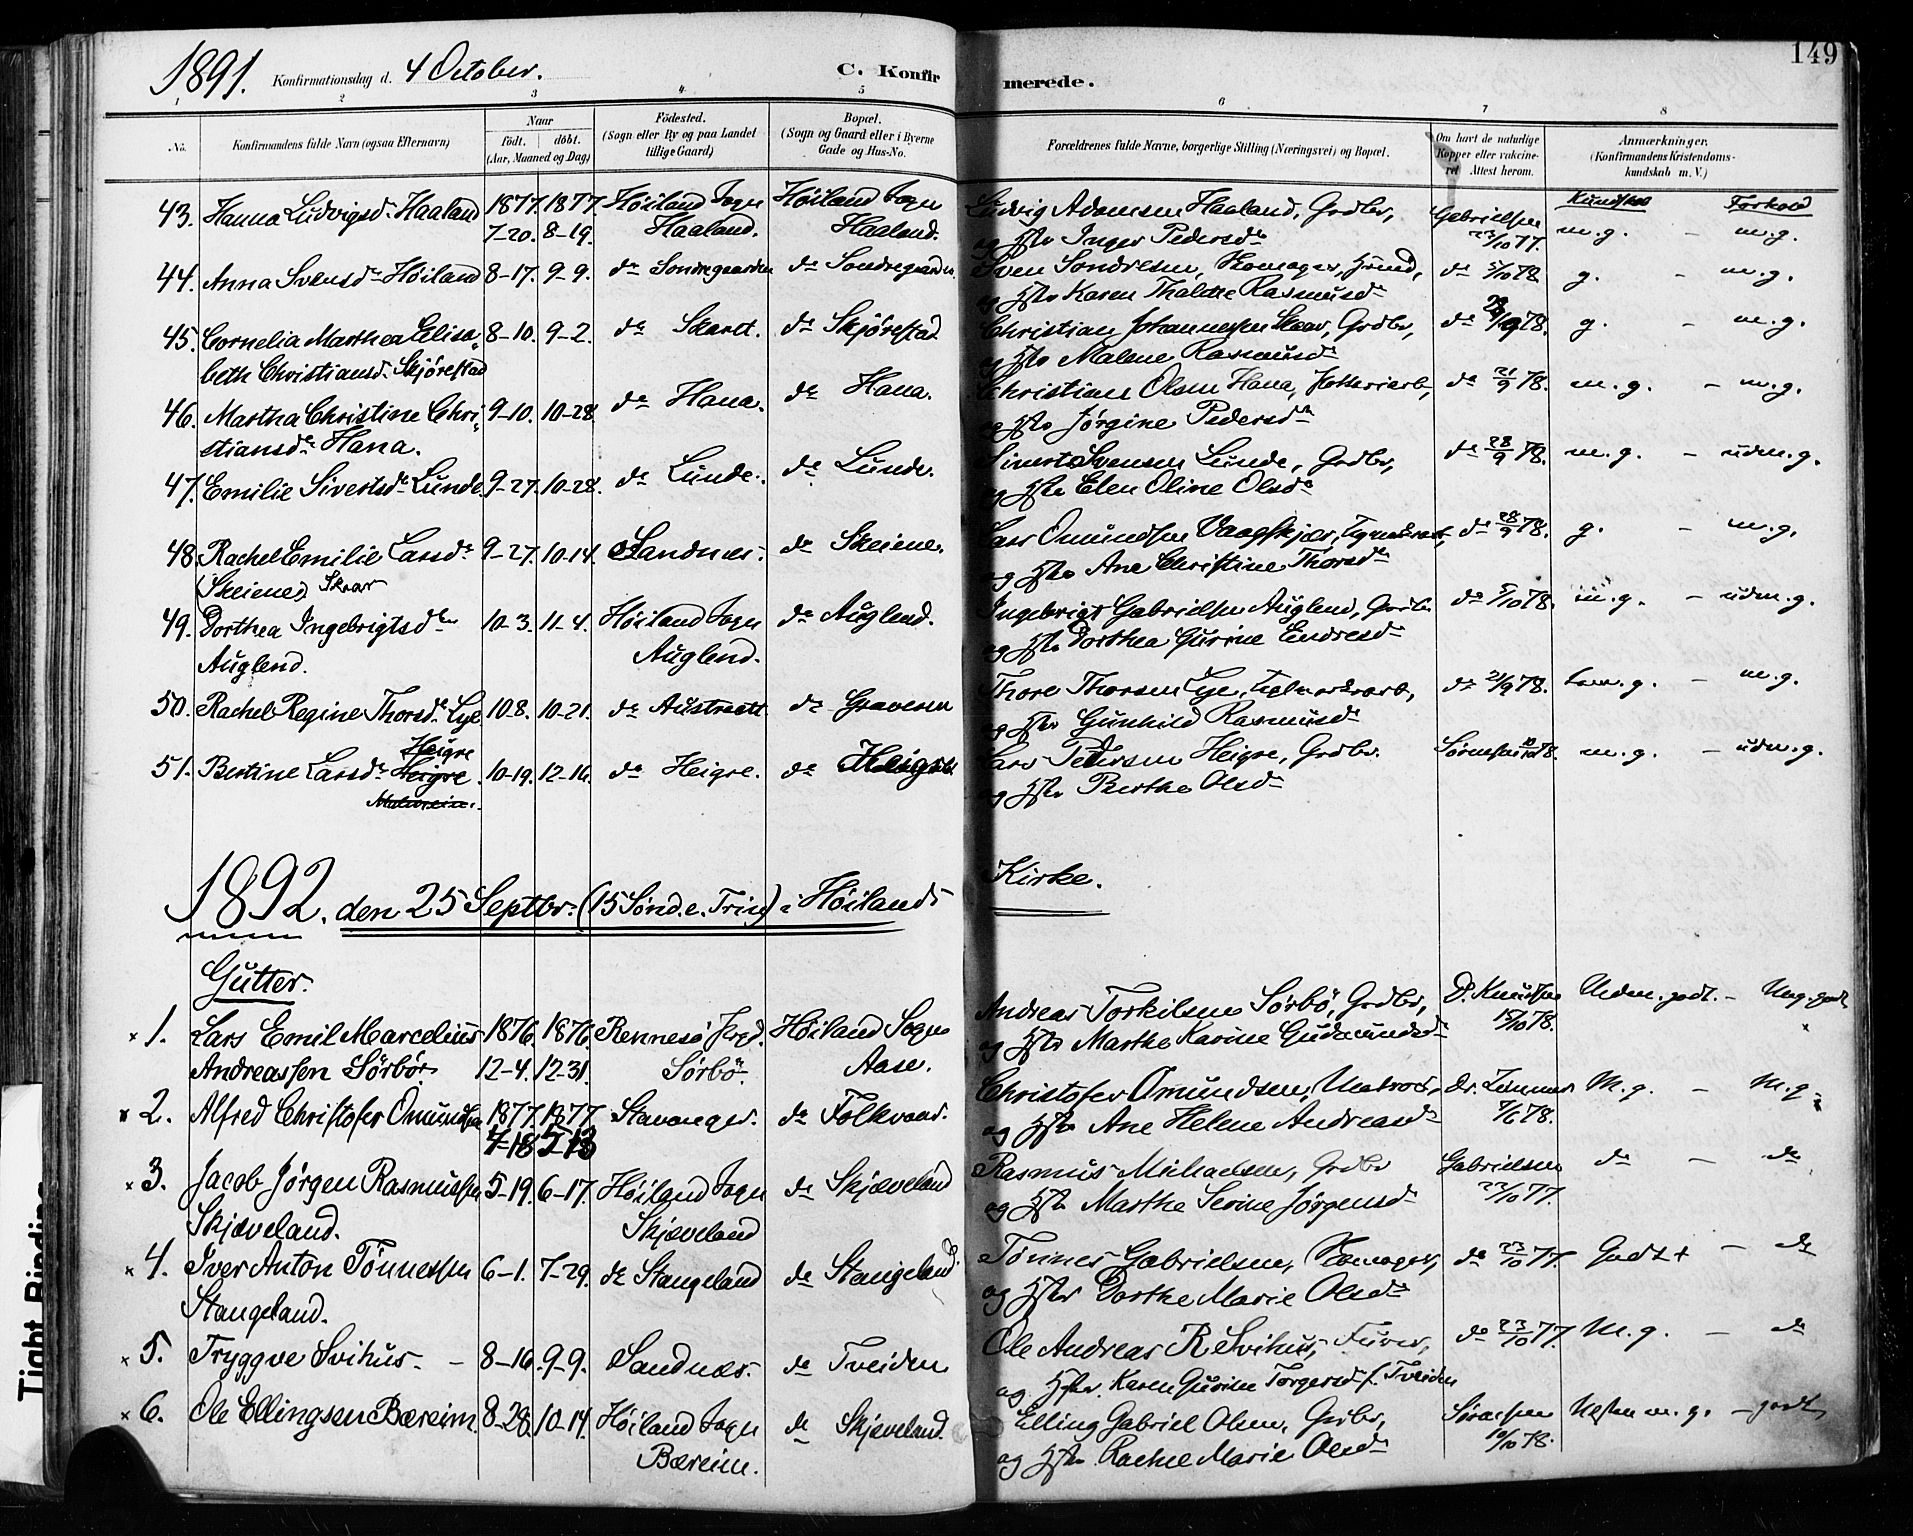 149
1891. Konfirmationsdag d. 4 October. C. Konfirmerede.
1 2 3 4 5 6 7 8
No. Konfirmandens fulde Navn (ogsaa Efternavn) Naar født. døbt. (Aar, Maaned og Dag) Fødested. (Sogn eller By og paa Landet tillige Gaard) Bopæl. (Sogn og Gaard eller i Byerne Gade og Hus-No. Forældrenes fulde Navne, borgerlige Stilling (Næringsvei) og Bopæl. Om havt de naturlige Kopper eller vaccineret. Attest herom. Anmærkninger. (Konfirmandens Kristendomskundskab m. V.)
Kundskab Forhold
43. Hanna Ludvigsd. Haaland 1877. 1877. Høiland Sogn Høiland Sogn Ludvig Adamsen Haaland, Grdbr, Gabrielsen m.g. – m.g.
7-20. 8-19. Haaland. Haaland. og Hstr Inger Pedersdr 23/10 77.
44. Anna Svensdr Høiland 8-17. 9-9. do Sondregaarden do Sondregaarden Sven Sondresen, Skomager, Husmd, do 5/10 78 g. – m.g.
og Hstr Karen Thalette Rasmusdr
45. Cornelia Marthea Elisa- 8-10. 9-2. do Skaret. do Skjørestad Christian Johannesen Skaar, Grdbr, do 28/9 78. g. – m.g.
beth Christiansd. Skjørestad og Hstr Malene Rasmusdr
46. Martha Christine Chri- 9-10. 10-28. do Hana. do Hana. Christian Olsen Hana, do 21/9 78. m.g. – m.g.
stiansdr Hana. og Hstr Jørgine Pedersdr
47. Emilie Sivertsdr Lunde 9-27. 10-28. do Lunde. do Lunde. Sivert Svensen Lunde, Grdbr, do 28/9 78. m.g. – udm.g.
og Hstr Elen Oline Olsdr
48. Rachel Emilie Larsdr 9-27. 10-14. Sandnes. do Skeiene. Lars Omundsen Vaagskjær, do 28/9 78. g. – m.g.
(Skeiene) Skaar og Hstr Ane Christine Thorsdr
49. Dorthea Ingebrigtsdr 10-3. 11-4. Høiland Sogn do Auglend. Ingebrigt Gabrielsen Auglend, Grdbr do 5/10 78. m.g. – udm.g.
Auglend. Auglend. og Hstr Dorthea Gurine Endresdr
50. Rachel Regine Thorsdr Lye 10-8. 10-21. do Austraatt do Gravesen Thore Thorsen Lye, do 21/9 78. m.g. – m.g.
og Hstr Gunhild Rasmusdr
Heigre
51. Bertine Larsdr Heigre. 10-19. 12-16. do Heigre. do Heigre. Lars Pedersen Heigre, Grdbr. Sørensen 10/10 78. m.g. – udm.g.
og Hstr Berthe Olsdr
1892. den 25 Septbr. (15 Sønd. e. Trin) i Høilands Kirke.
Gutter.
x 1. Lars Emil Marcelius 1876. 1876. Rennesø Prgd. Høiland Sogn Andreas Torkilsen Sørbø, Grdbr, D. Knudsen Uden. godt. – Mg. godt
Andreassen Sørbø. 12-4. 12-31. Sørbø. Aase. og Hstr Marthe Karine Gudmundsdr 15/10 78.
x 2. Alfred Christofer Omundsen 1877. 1877. Stavanger. do Folkvord. Christofer Omundsen, Matros, Dr. M.g. – M.g.
4-18 5-13 og Hstr Ane Helene Andreasdr 7/6 78.
x 3. Jacob Jørgen Rasmussen 5-19. 6-17. Høiland Sogn do Skjæveland Rasmus Michaelsen, Grdbr Gabrielsen do – do
Skjæveland. Skjæveland og Hstr Marthe Serine Jørgensdr 23/10 77.
x 4. Iver Anton Tønnessen 6-1. 7-29. do Stangeland do Stangeland Tønnes Gabrielsen, Skomager, do 23/10 77. Godt + – do
Stangeland. og Hstr Dorthe Marie Olsdr
x 5. Tryggve Svihus. – 8-16. 9-9. Sandnæs. do Tveiden Ole Andreas R Svihus, do 23/10 77. M.g. – do
og Hstr. Karen Gurine Torgersd f. Tveiden
x 6. Ole Ellingsen Bæreim. 8-28. 10-14. Høiland Sogn do Skjæveland. Elling Gabriel Olsen, Grdbr, Sørensen Næsten m.g. – godt
Bæreim. og Hstr. Rachel Marie Olsdr 10/10 78.
Tight Binding